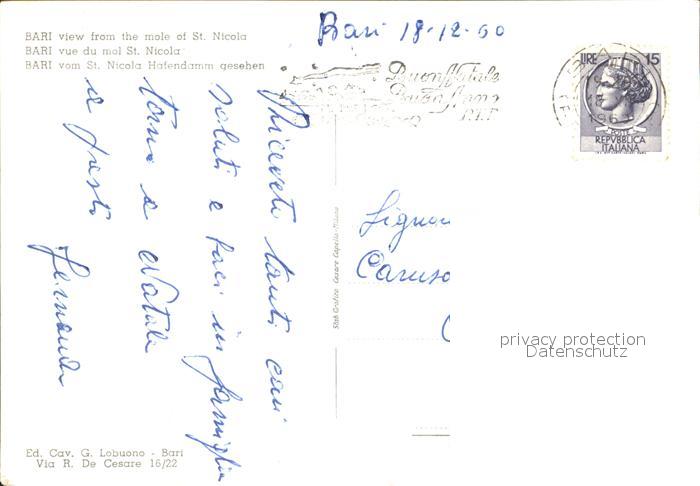 BARI view from the mole of St. Nicola
BARI vue du mol St. Nicola
BARI vom St. Nicola Hafendamm gesehen
Bari 18-12-60
Buon Natale
Buon Anno
P.T.T
LIRE 15
POSTE
REPVBBLICA
ITALIANA
Ricevete tanti cari
saluti e baci in famiglia
torno a Natale
Fernando
Stab. Grafico Cesare Capello-Milano
Caruso
privacy protection
Datenschutz
Ed. Cav. G. Lobuono - Bari
Via R. De Cesare 16/22